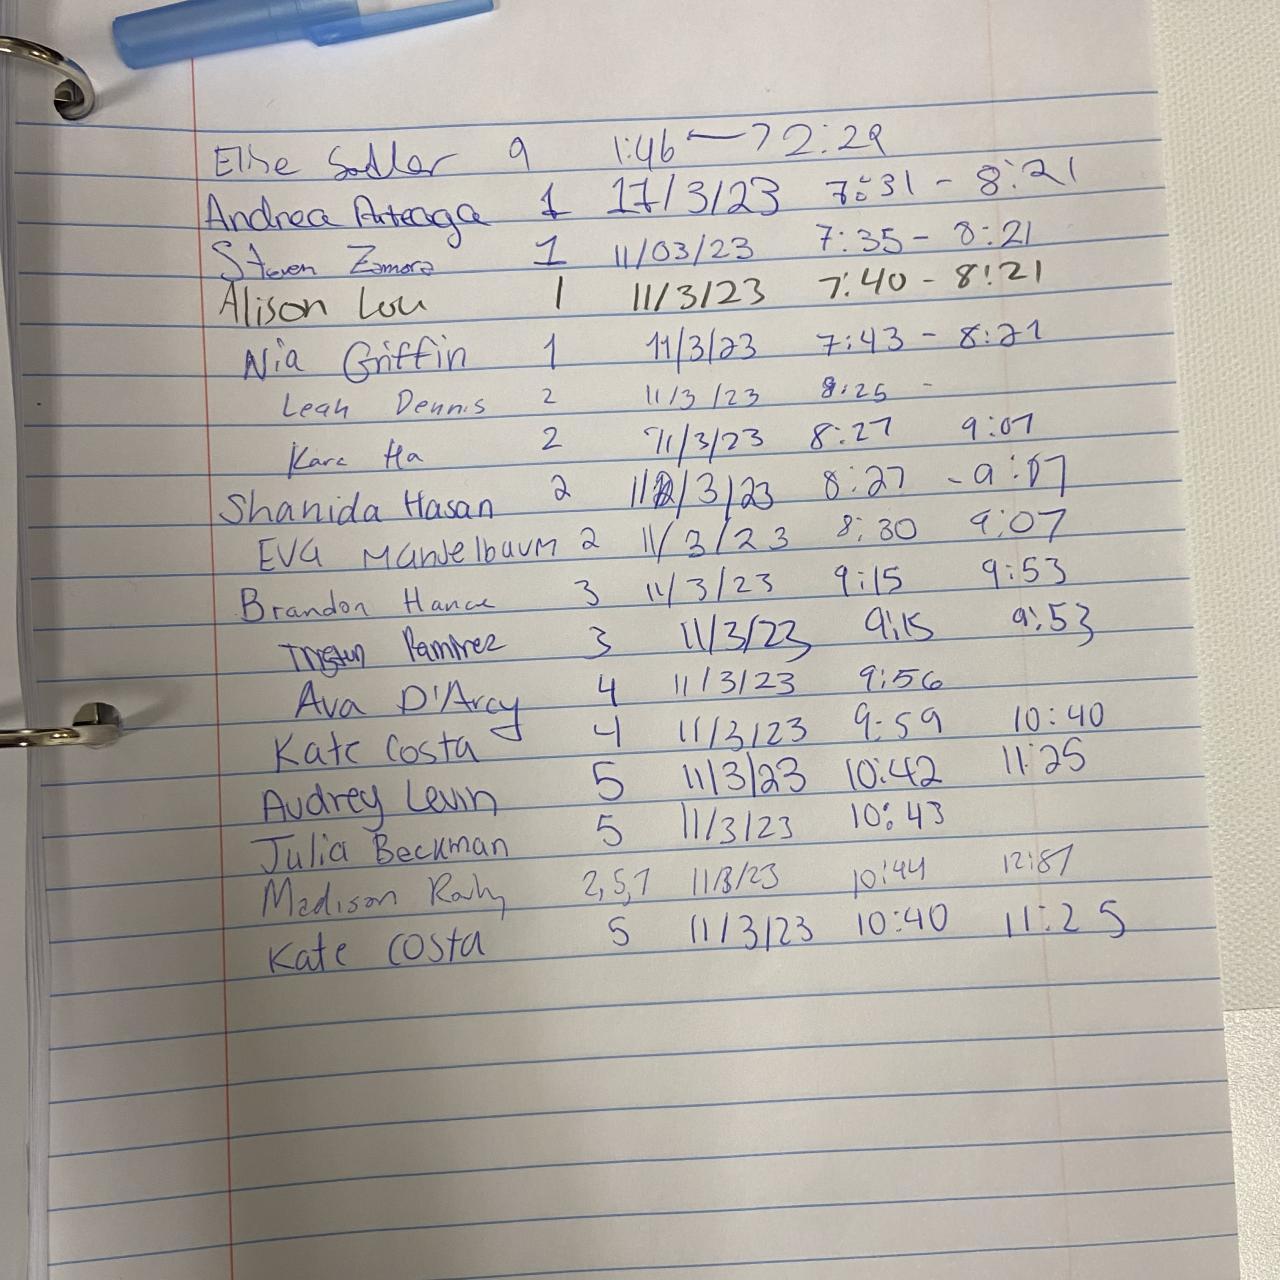 Elise Sadler 9 1:46 → 2:29
Andrea Arteaga 1 11/3/23 7:31 - 8:21
Steven Zamora 1 11/03/23 7:35 - 8:21
Alison Lou 1 11/3/23 7:40 - 8:21
Nia Griffin 1 11/3/23 7:43 - 8:21
Leah Dennis 2 11/3/23 8:25 -
Kara Ha 2 11/3/23 8:27 9:07
Shanida Hasan 2 11/3/23 8:27 - 9:07
EVA MANdelbaum 2 11/3/23 8:30 9:07
Brandon Hance 3 11/3/23 9:15 9:53
Tristen Ramirez 3 11/3/23 9:15 9:53
Ava D'Arcy 4 11/3/23 9:56
Kate Costa 4 11/3/23 9:59 10:40
Audrey Levin 5 11/3/23 10:42 11:25
Julia Beckman 5 11/3/23 10:43
Madison 2,5,7 11/3/23 10:44
Kate Costa 5 11/3/23 10:40 11:25